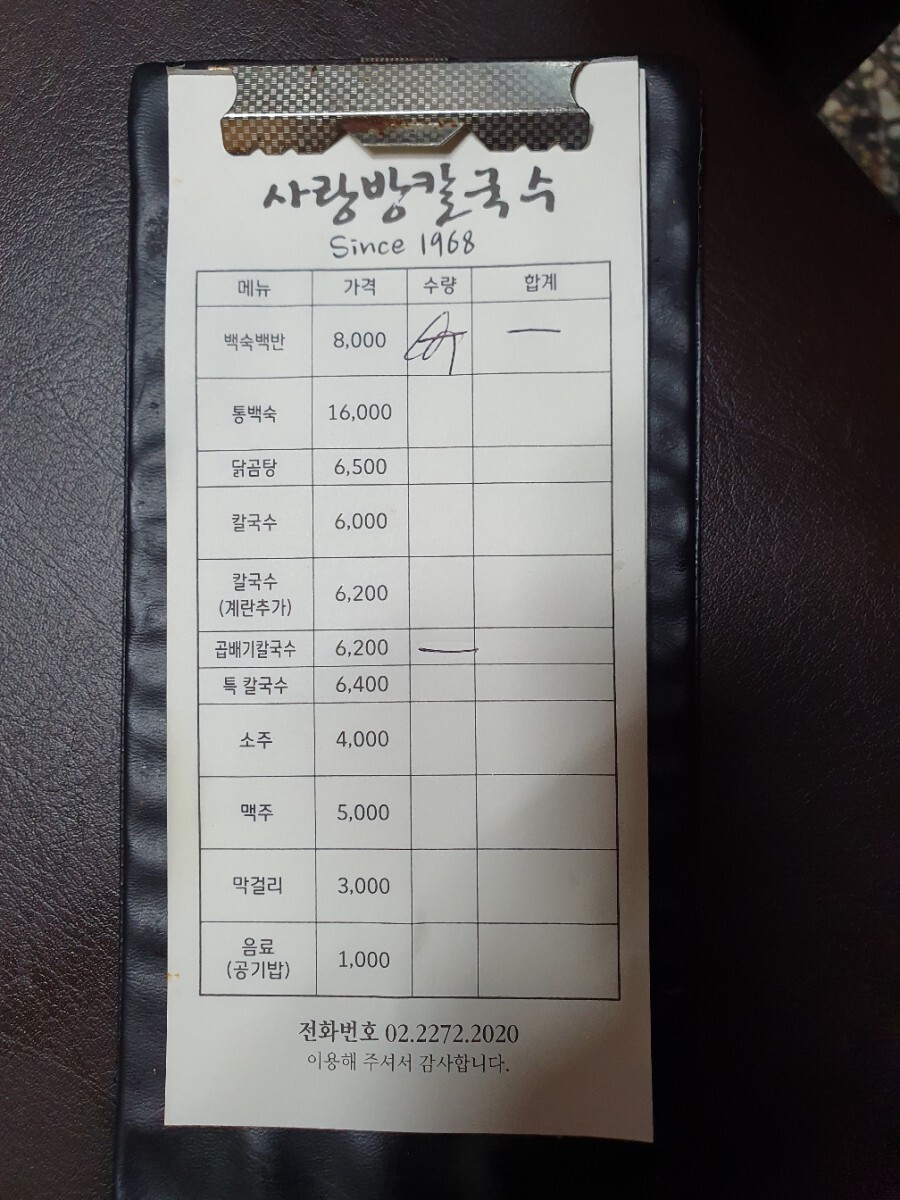 사랑방칼국수
Since 1968
메뉴 가격 수량 합계
백숙백반 8,000 一
통백숙 16,000
닭곰탕 6,500
칼국수 6,000
칼국수
(계란추가) 6,200
곱배기칼국수 6,200 一
특 칼국수 6,400
소주 4,000
맥주 5,000
막걸리 3,000
음료
(공기밥) 1,000
전화번호 02.2272.2020
이용해 주셔서 감사합니다.